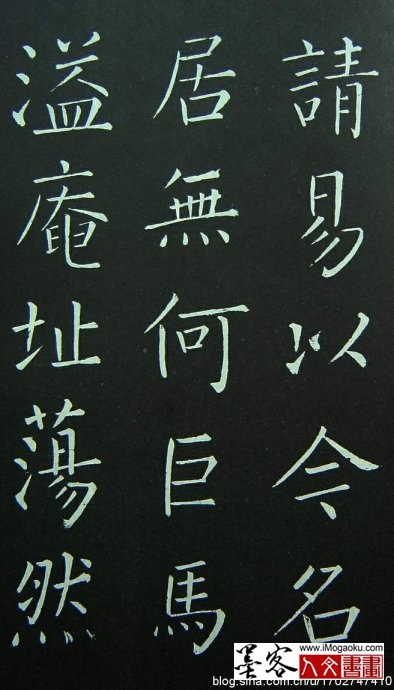 請易以今名
居無何巨馬
溢庵址蕩然
墨客
www.iMogaoku.com
人文書畫
blog.sina.com.cn/u/1702747410